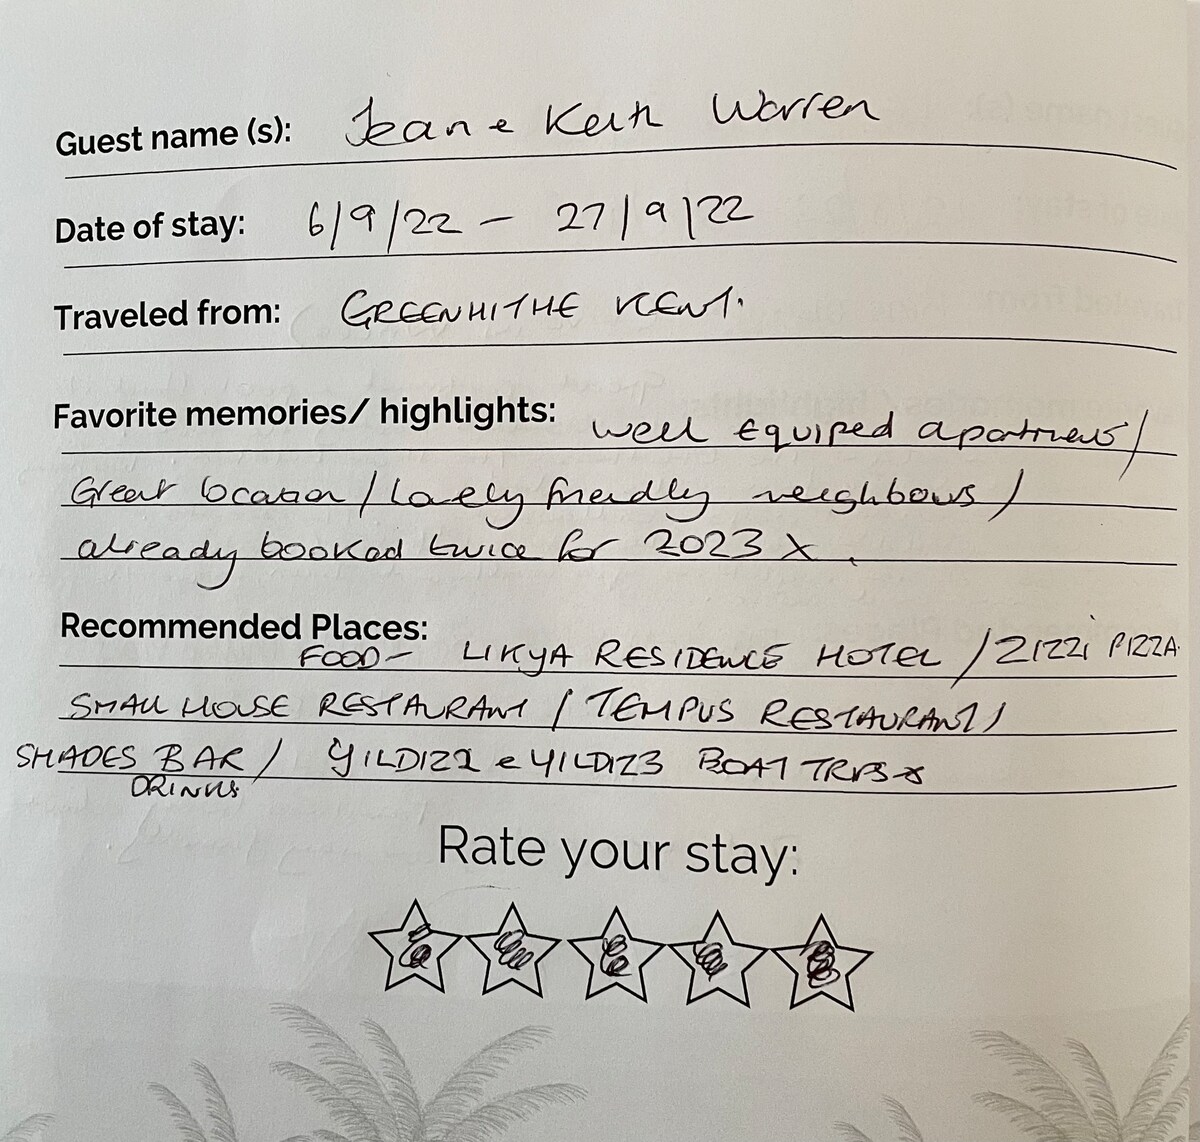 Guest name (s): Jean e Keith Warren
Date of stay: 6/9/22 - 27/9/22
Traveled from: GREENHITHE KENT.
Favorite memories/ highlights: Well Equiped apartment/
Great location/Lovely friendly neighbours/
already booked twice for 2023 X
Recommended Places:
FOOD- LIKYA RESIDENCE HOTEL / ZIZZI PIZZA
SMALL HOUSE RESTAURANT / TEMPUS RESTAURANT/
SHADES BAR / YILDIZ2 e YILDIZ3 BOAT TRIPS
DRINKS
Rate your stay: